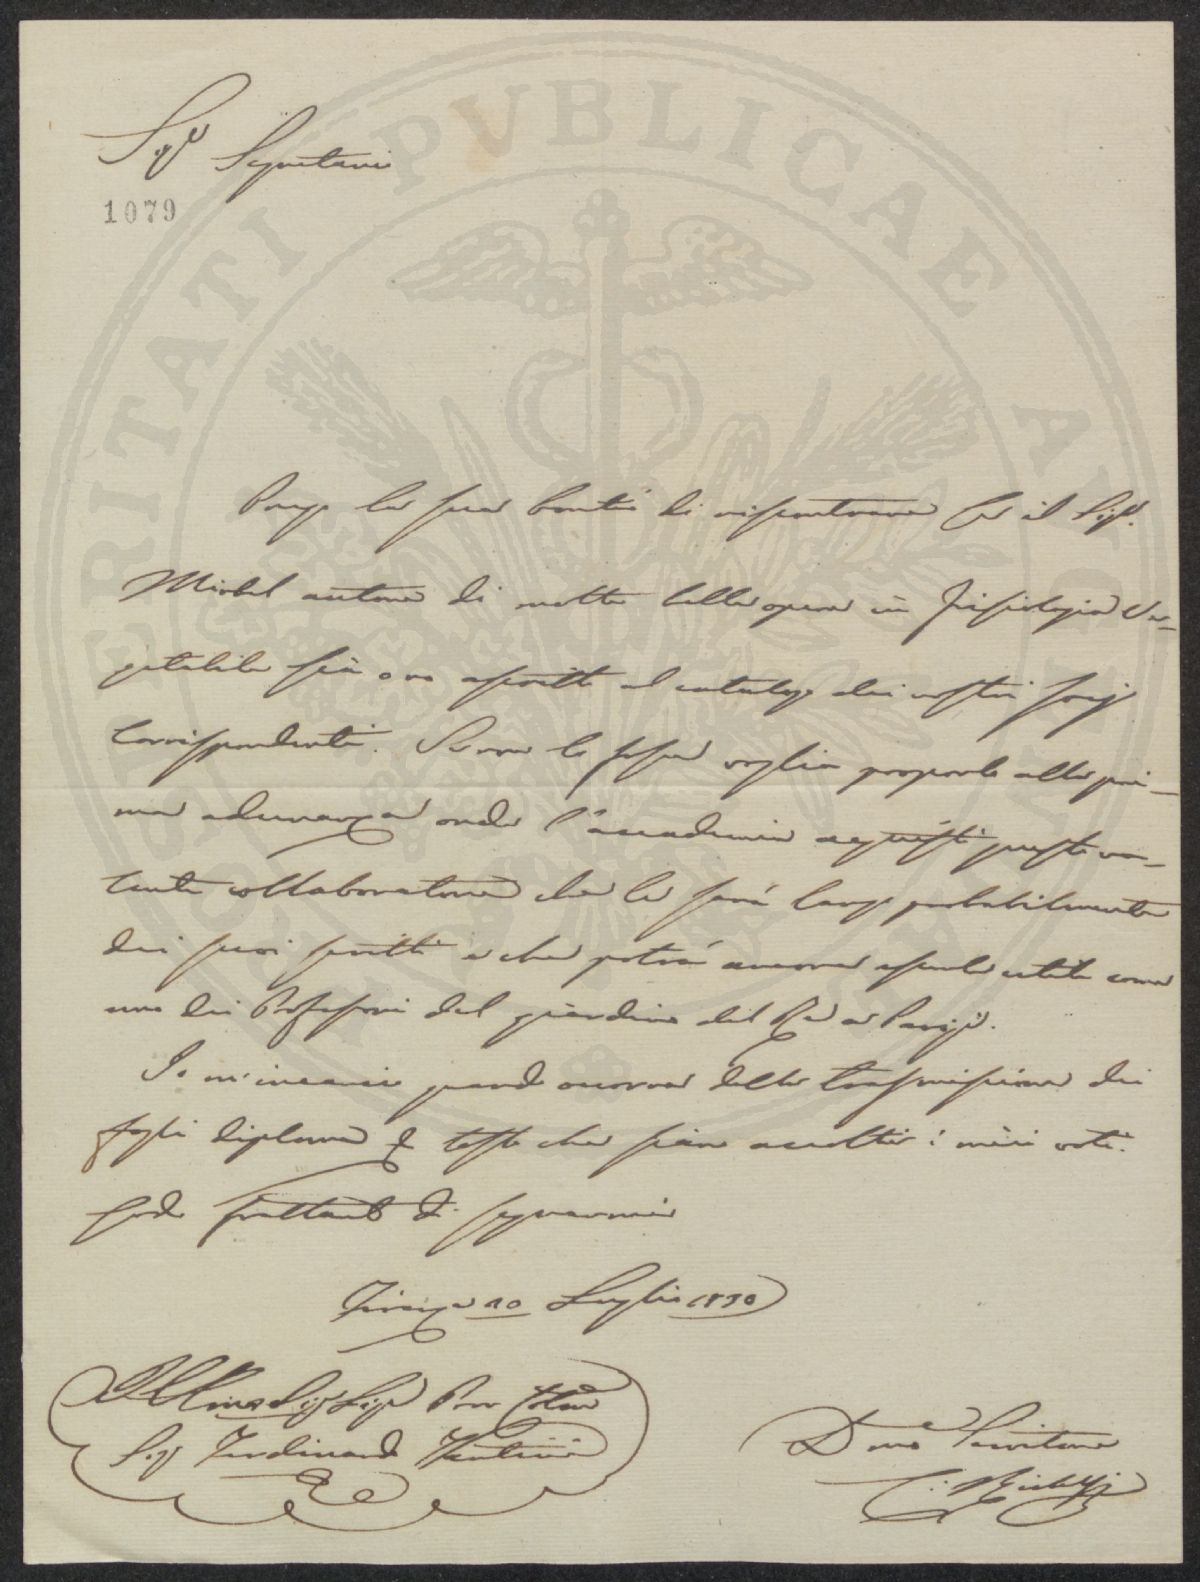 PROSPERITATI PVBLICAE AVGENDAE
Sig.r Segretario
1079
Prego la sua bontà di riscontrare se il Sig.r
Mirbel autore di molte belle opere in Fisiologia Ve-
getabile sia o no ascritto al catalogo dei nostri Socj
Corrispondenti. Se non lo fosse voglia proporlo alla pri-
ma adunanza onde l'accademia acquisti questo
collaboratore che le sarà largo probabilmente
dei suoi scritti e che potrà ancora esserle utile come
uno dei Professori del giardino del Re a Parigi.
Io m'incarico quando occorra della trasmissione dei
fogli diploma & tosto che siano accolti i miei voti.
Godo frattanto di segnarmi
Firenze 10 Luglio 1830
Illmo Sig.r Sig.r Pron Colmo
Sig. Ferdinando Tartini
Devmo Servitore
C: Ridolfi